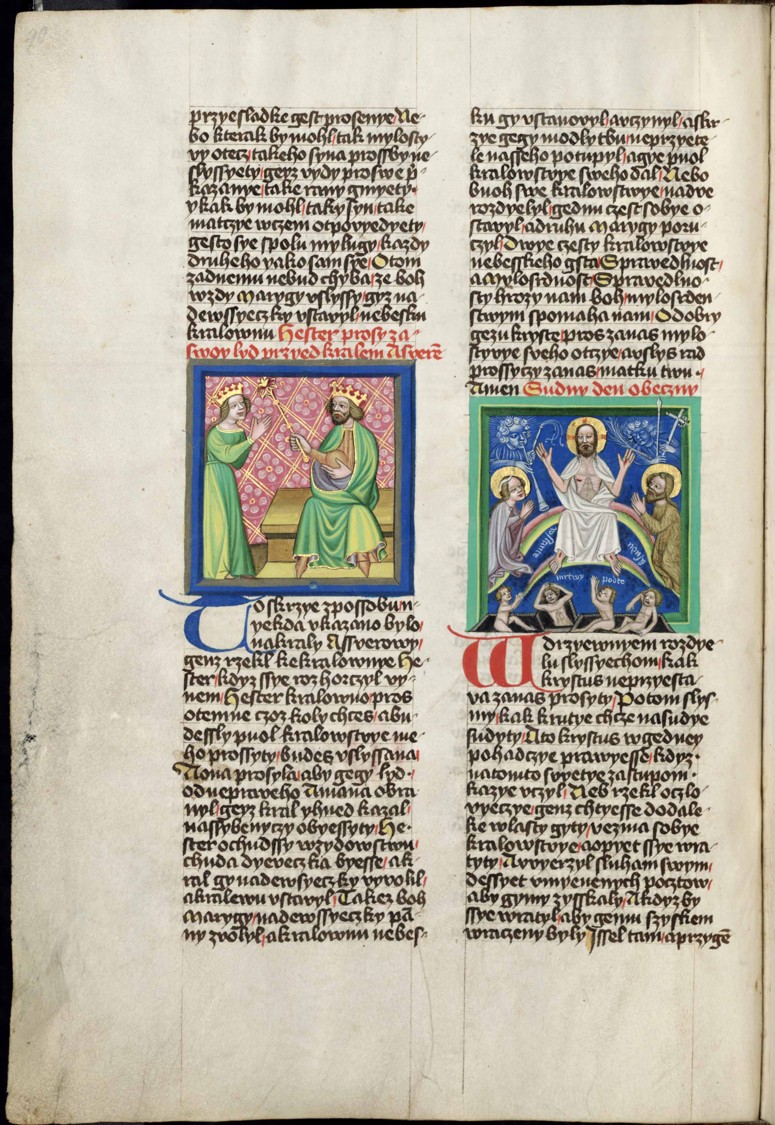 przyesladke gest prosenye Ne-
bo kterak by mohl tak mylosty-
vy otecz takeho syna prossby ne-
slyssyety geyz vydy pro swe p̄-
kazanye take rany gmyety
vkak by mohl taky syn take
matcze w czem otpovyedyety
gesto sye spolu mylugi kazdy
druheho yako sam sye O tom
zadnemu nebud chyba ze boh
wzdy Marygy vslyssy gyz na-
dewssyeczky vstavyl nebesku
kralownu Hester prosy za-
swoy lyd przyed kralem Asverē
To skrzye zpossobu n-
yekda vkazano bylo
na kraly Assverowy
genz rzekl ke kralownye He-
ster kdyz ssye rozhorczyl vy-
nem Hester kralowno pros
o te mne czoz koly chces a bu-
dessly puol kralowstvye me-
ho prossyty budes vslyssana
A ona prosyla aby gegy lyd
od nepraveho Amana obra-
nyl geyz kral yhned kazal
na ssybenyczy obyessyty He-
ster ochudssy w zydowstwu
chuda dyeveczka byesse a k-
ral gy nadewsyeczky vyvolil
a kralewu vstavyl Takez boh
Marygy nadewssyeczky pā-
ny zvolyl a kralownu nebes-
ku gy vstanovyl a vczynyl a skr-
zye gegy modlytbu neprzyete-
le nasseho potupyl a gye puol
kralowstvye sweho dal Nebo
buoh swe kralowstwye na dve
rozdyelyl gednu czest sobye o-
stavyl a druhu Marygy poru-
czyl Dwye czesty kralowstvye
nebesskeho gsta Sprawedlnost
a mylosrdnost Sprawedlno-
sty hrozy nam boh mylosrden-
stwym spomaha nam O dobry
gezu kryste pros za nas mylo-
styvye sveho otczye a vslys rad
prossyczy za nas matku twu
Amen Sudny den obeczny
mrtwy podte
W drzyewnyem rozdye-
lu slyssyechom kak
krystus neprzyesta-
va za nas prosyty Potom slys-
my kak krutye chcze nas udye
sudyty A to krystus w gedney
pohadczye prawyesse kdyz
na tomto svyetye zastupom
kazye vczyl Neb rzekl oczlo-
vyeczye genz chtyesse do dale-
ke wlasty gyty vezma sobye
kralowstvye a opyet ssye wra-
tyty A vvyerzyl sluham swym
dessyet vmyenenych pocztow
aby gymy zysskaly A kdyz by
ssye wratyl aby gemu s zyskem
wraczeny byly Jssel tam a przygē